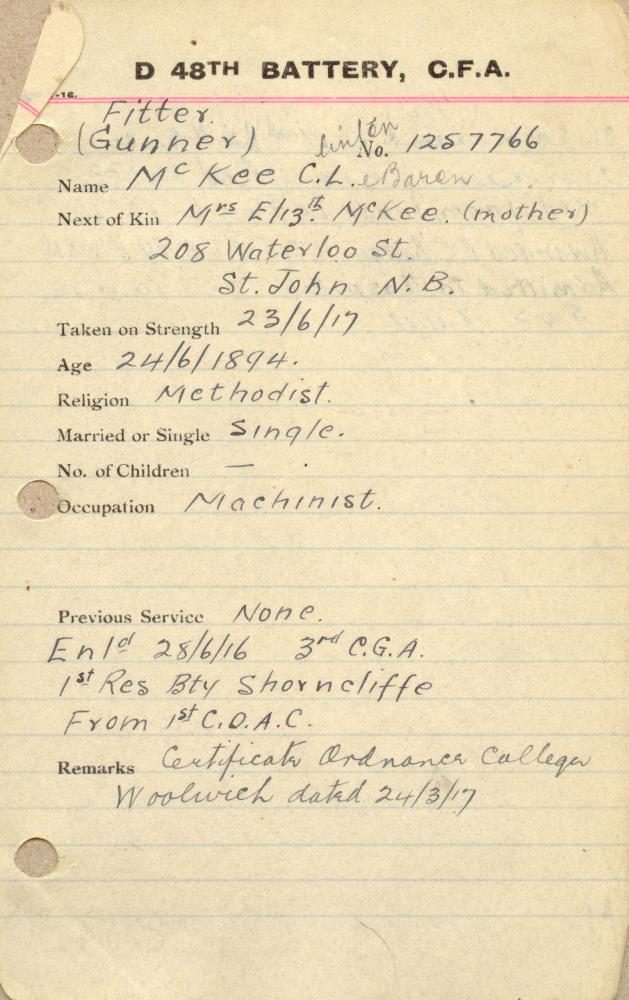 D 48TH BATTERY, C.F.A.
-16.
Fitter.
(Gunner) No. 1257766
Name McKee C.L.eBaron
Next of Kin Mrs Eliz'th. McKee. (mother)
208 Waterloo St.
St. John N.B.
Taken on Strength 23/6/17
Age 24/6/1894.
Religion Methodist.
Married or Single Single.
No. of Children —
Occupation Machinist.
Previous Service None.
Enld 28/6/16 3rd C.G.A.
1st Res Bty Shorncliffe
From 1st C.O.A.C.
Remarks Certificate Ordnance College
Woolwich dated 24/3/17